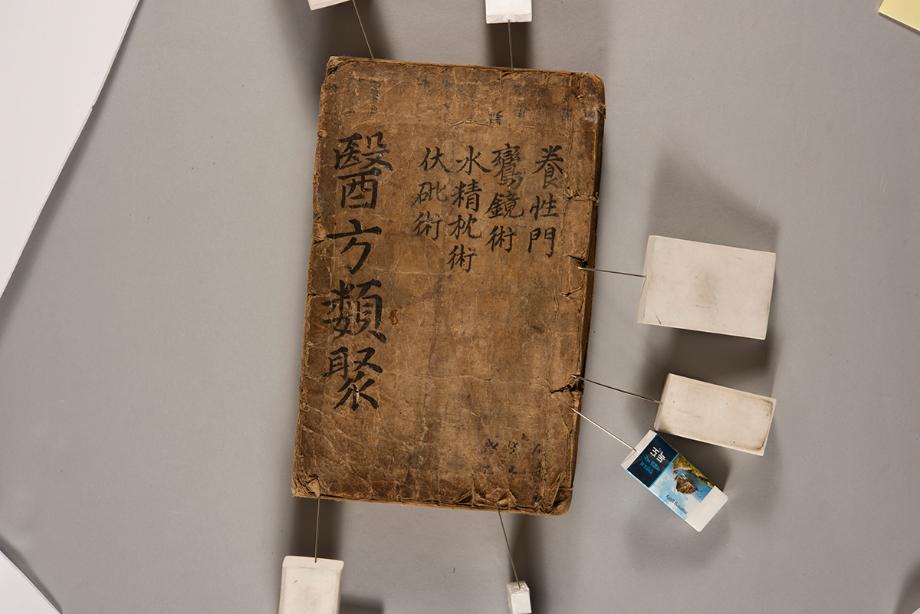 養性門
鸞鏡術
水精枕術
伏砒術
醫方類聚